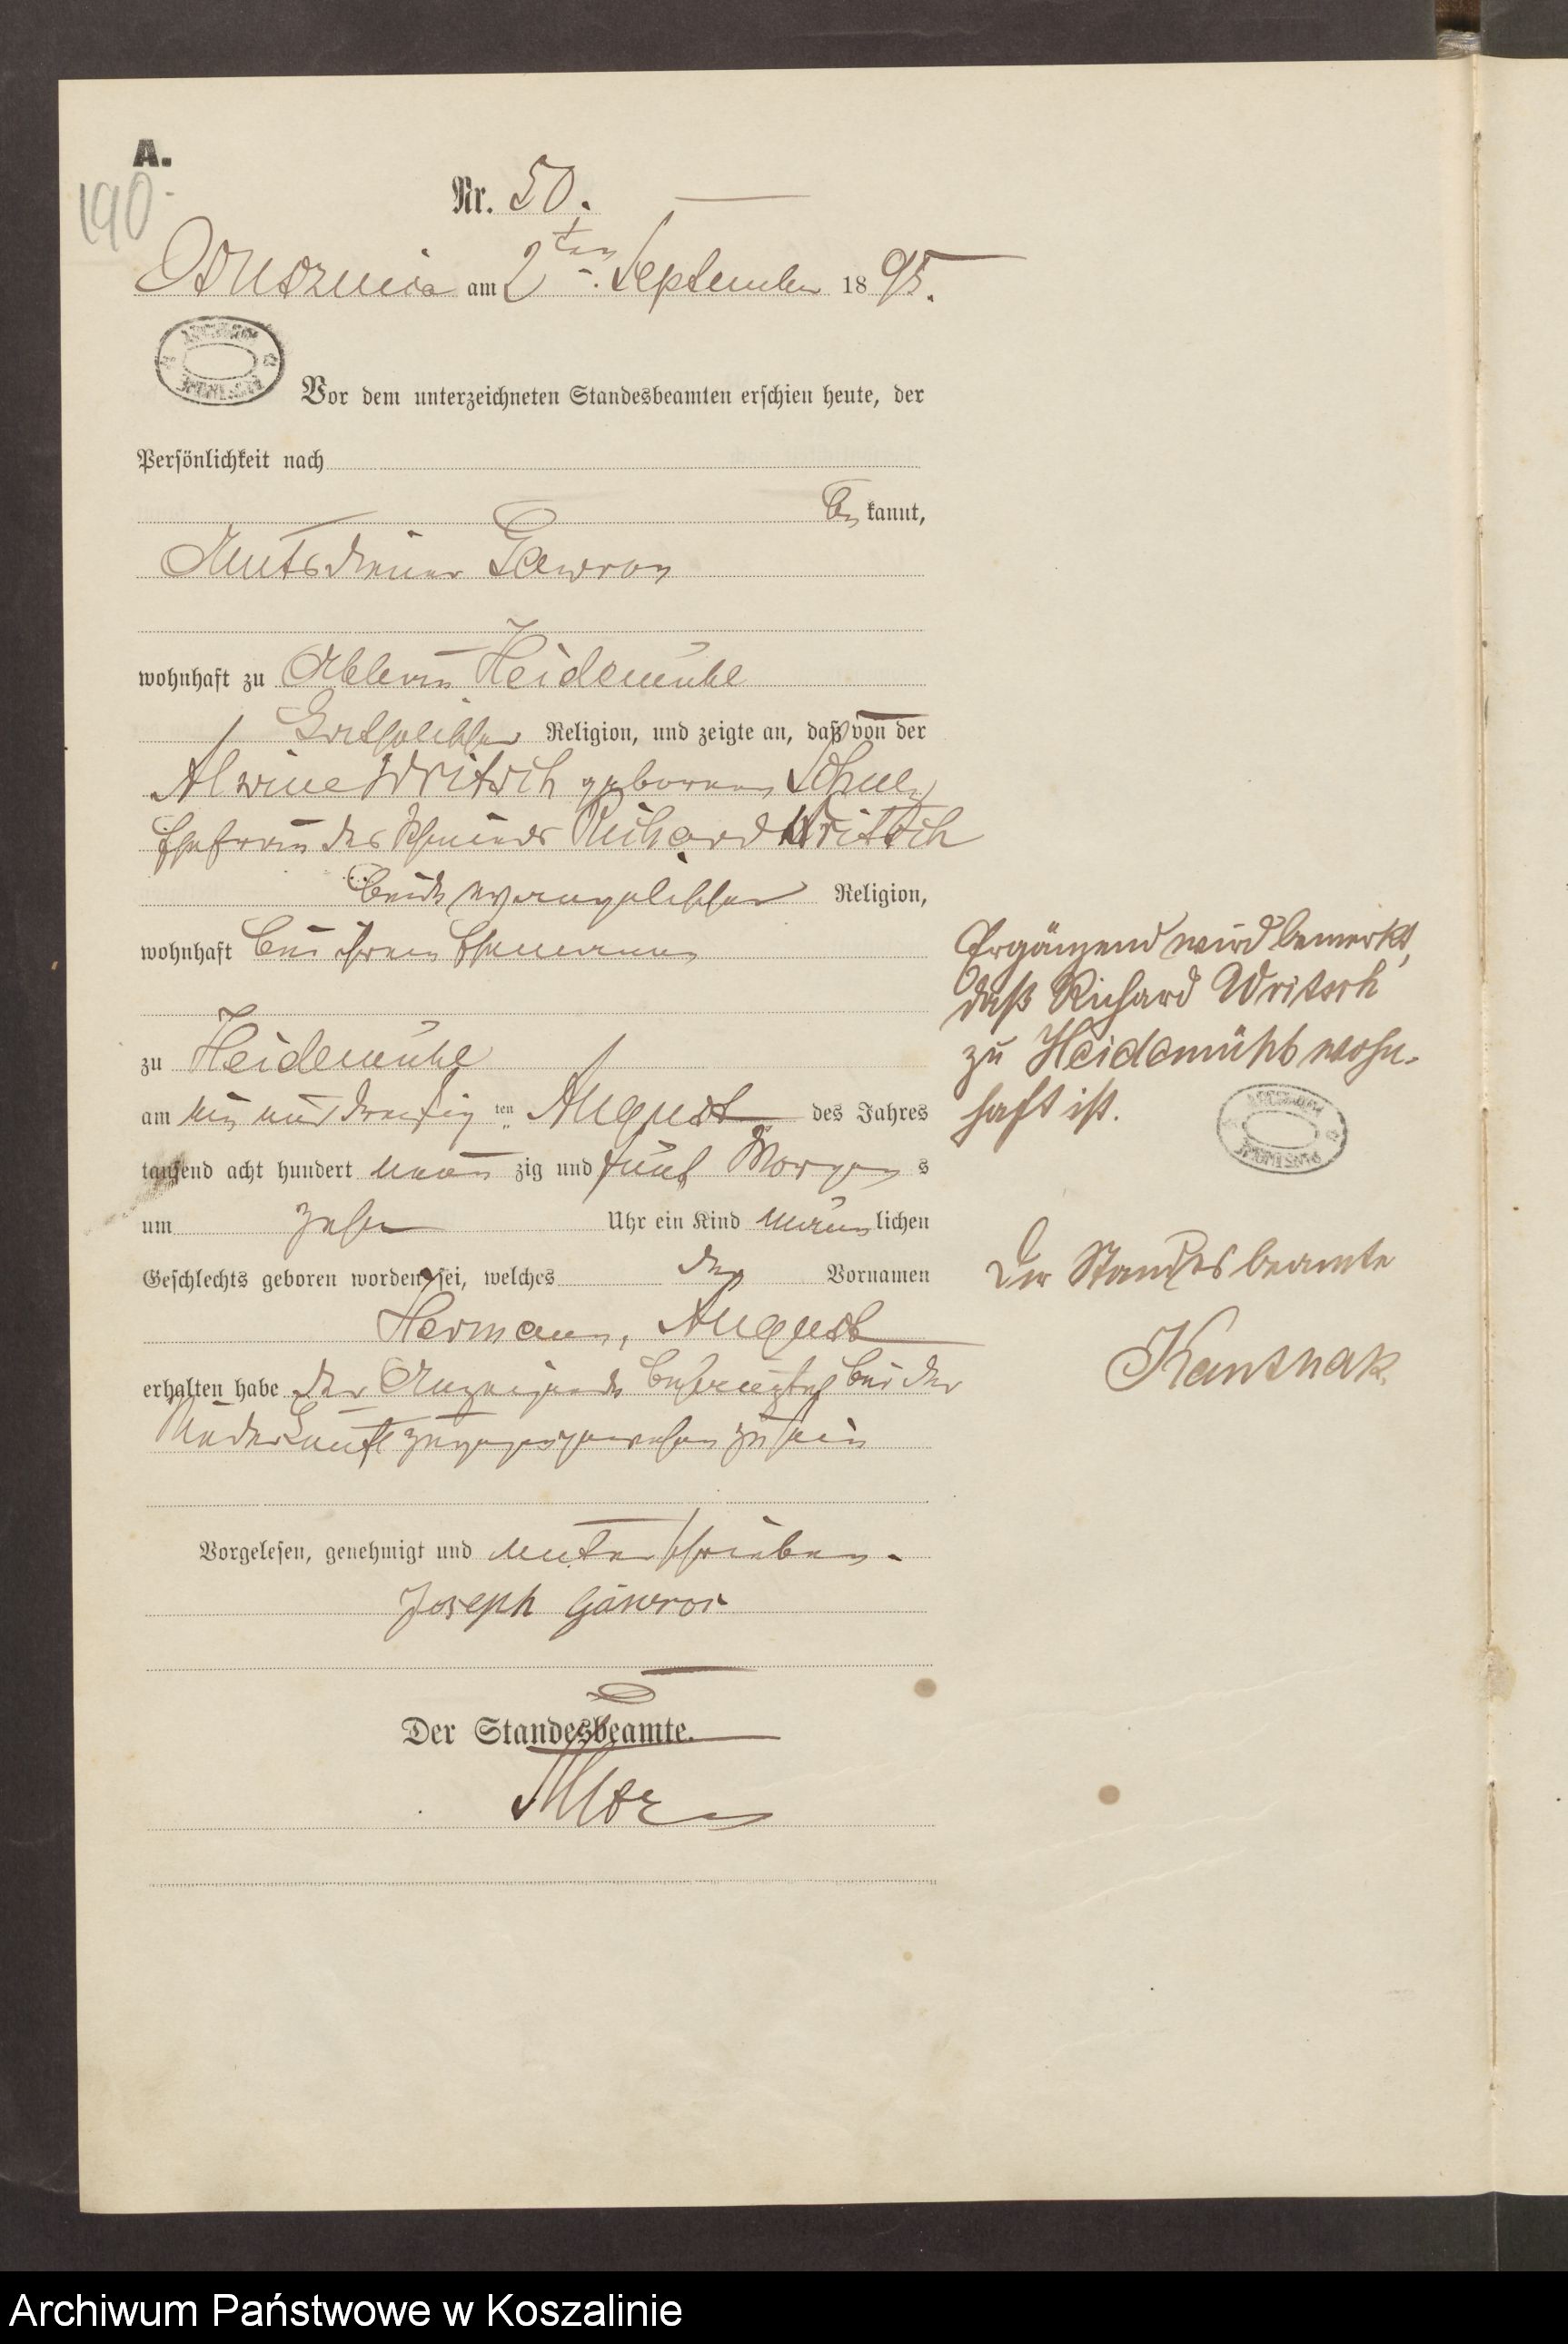 A.
190.
Nr. 50.
Ossusznica am 2ten September 1895.
Vor dem unterzeichneten Standesbeamten erschien heute, der
Persönlichkeit nach
be kannt,
Amtsdiener Gawron
wohnhaft zu Abbau Heidemühl
katholischer Religion, und zeigte an, daß von der
Alwine Writsch geborenen Schulz
Ehefrau des Schmieds Richard Writsch
beide evangelischer Religion,
wohnhaft bei ihrem Ehemanne
zu Heidemühl
am ein und dreißig ten August des Jahres
tausend acht hundert neun zig und fünf Morgens
um zehn Uhr ein Kind männlichen
Geschlechts geboren worden sei, welches die Vornamen
Hermann, August
erhalten habe der Anzeigende bei der
Niederkunft zugegen gewesen zu sein
Vorgelesen, genehmigt und unterschrieben.
Joseph Gawron
Der Standesbeamte.
Ergänzend wird bemerkt,
daß Richard Writsch
zu Heidemühl wohn-
haft ist.
Der Standesbeamte
Archiwum Państwowe w Koszalinie